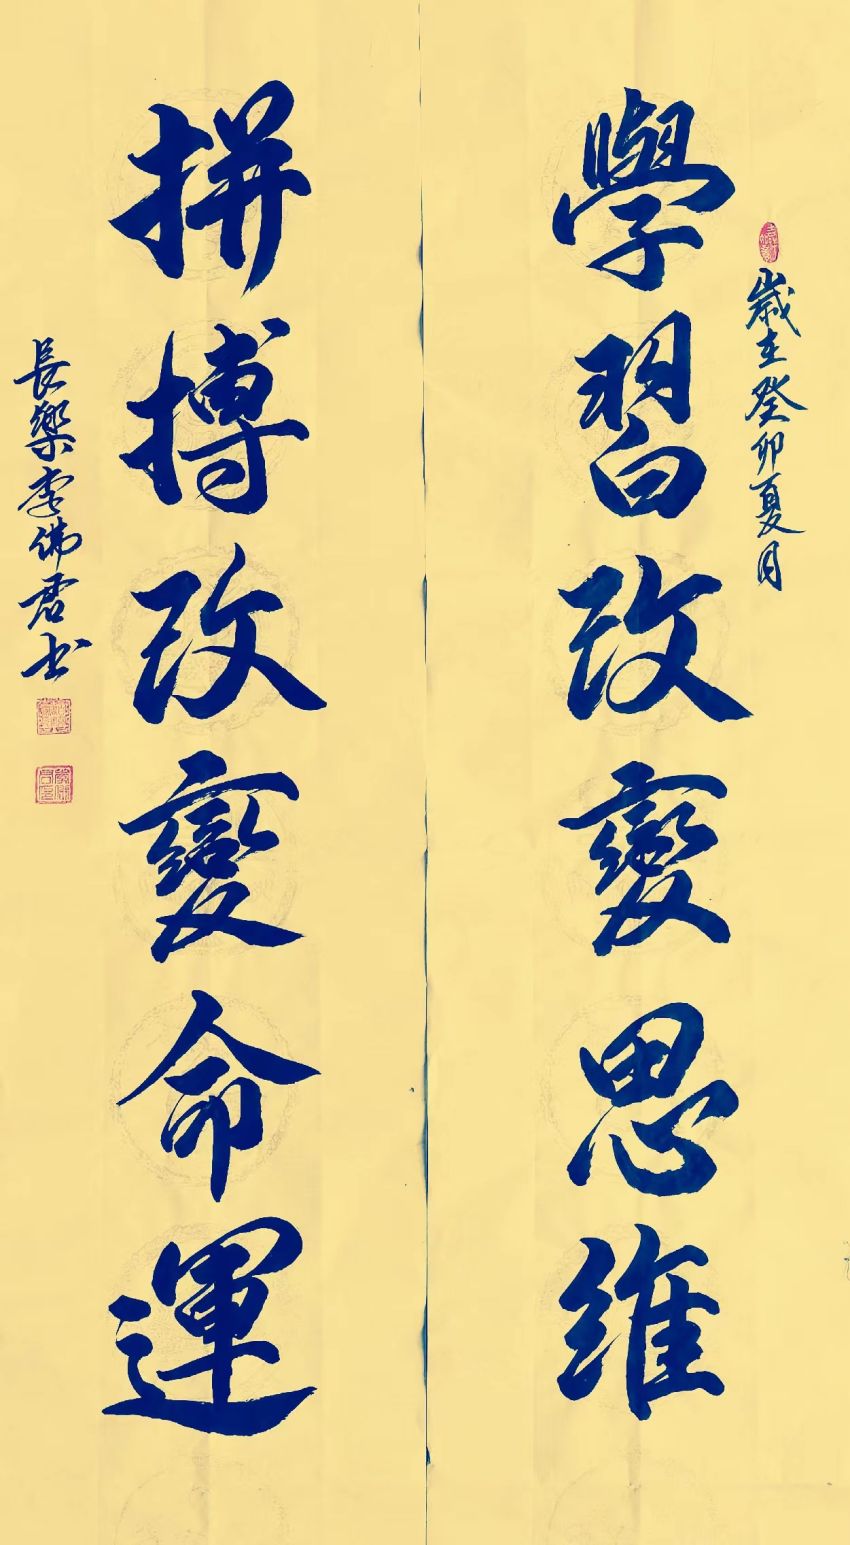 歲在癸卯夏月
學習改變思維
拼搏改變命運
長樂李佛君书